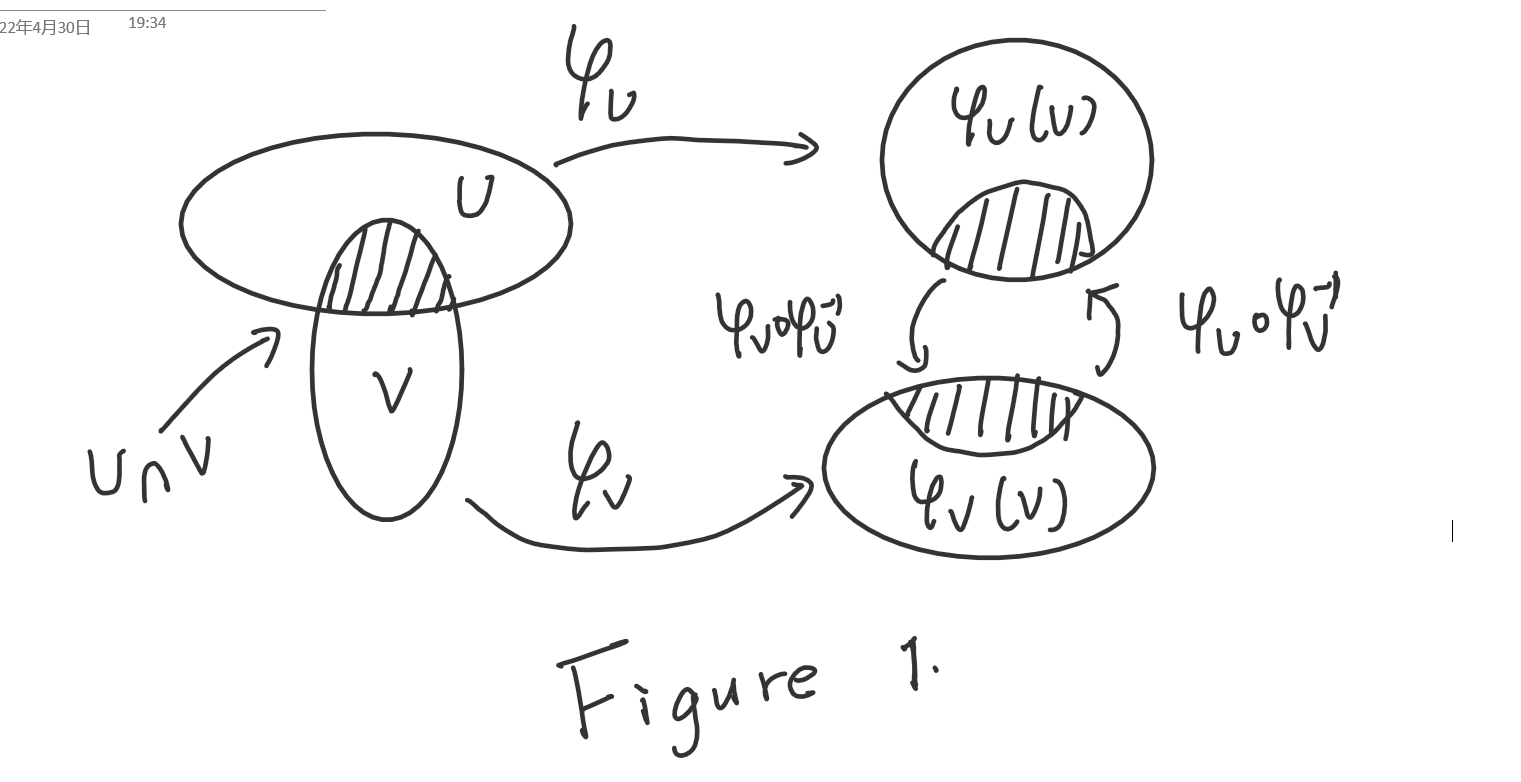 22年4月30日 19:34
φ_U
φ_U(U)
U
φ_V∘φ_U⁻¹
φ_U∘φ_V⁻¹
V
U∩V
φ_V
φ_V(V)
Figure 1.